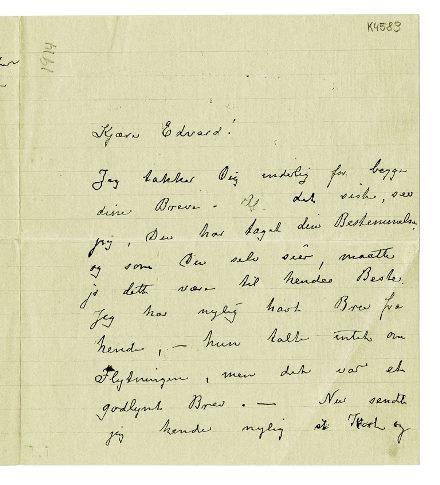 K4583
1914
Kjære Edvard!
Jeg takker Dig inderlig for begge
dine Breve. Af det siste, ser
jeg, Du har taget din Bestemmelse,
og som Du selv sier, maatte
jo dette være til hendes Beste.
Jeg har nylig havt Brev fra
hende, – hun talte intet om
Flytningen, men det var et
godlynt Brev. — Nu sendte
jeg hende nylig et Kort og